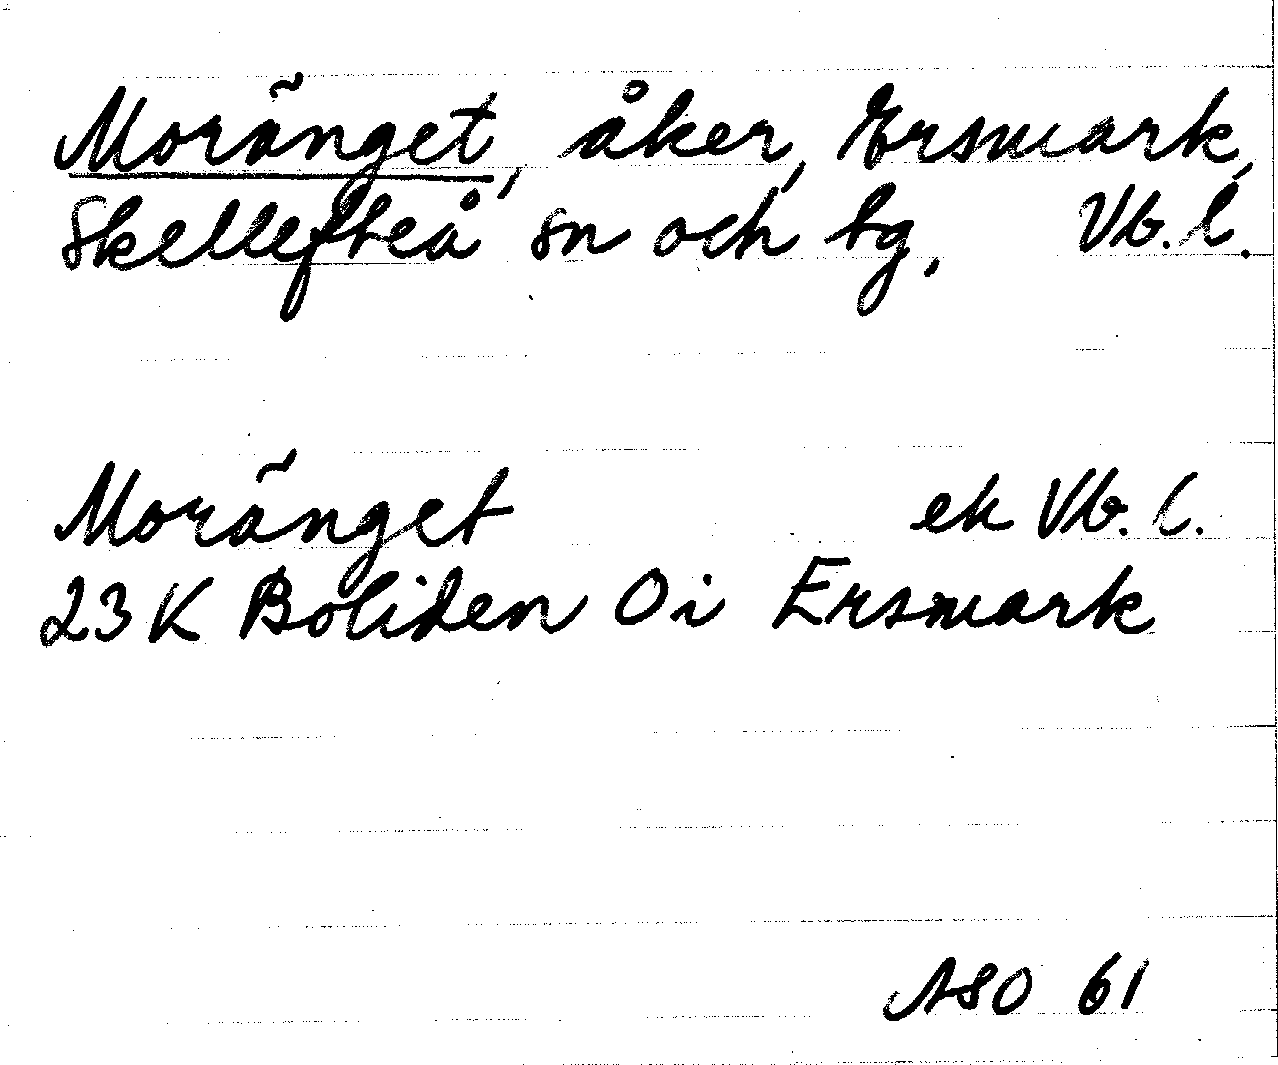 Moränget, åker, Ersmark,
Skellefteå sn och tg, Vb.l.
Moränget ek Vb.l.
23K Boliden 0i Ersmark
ASO 61